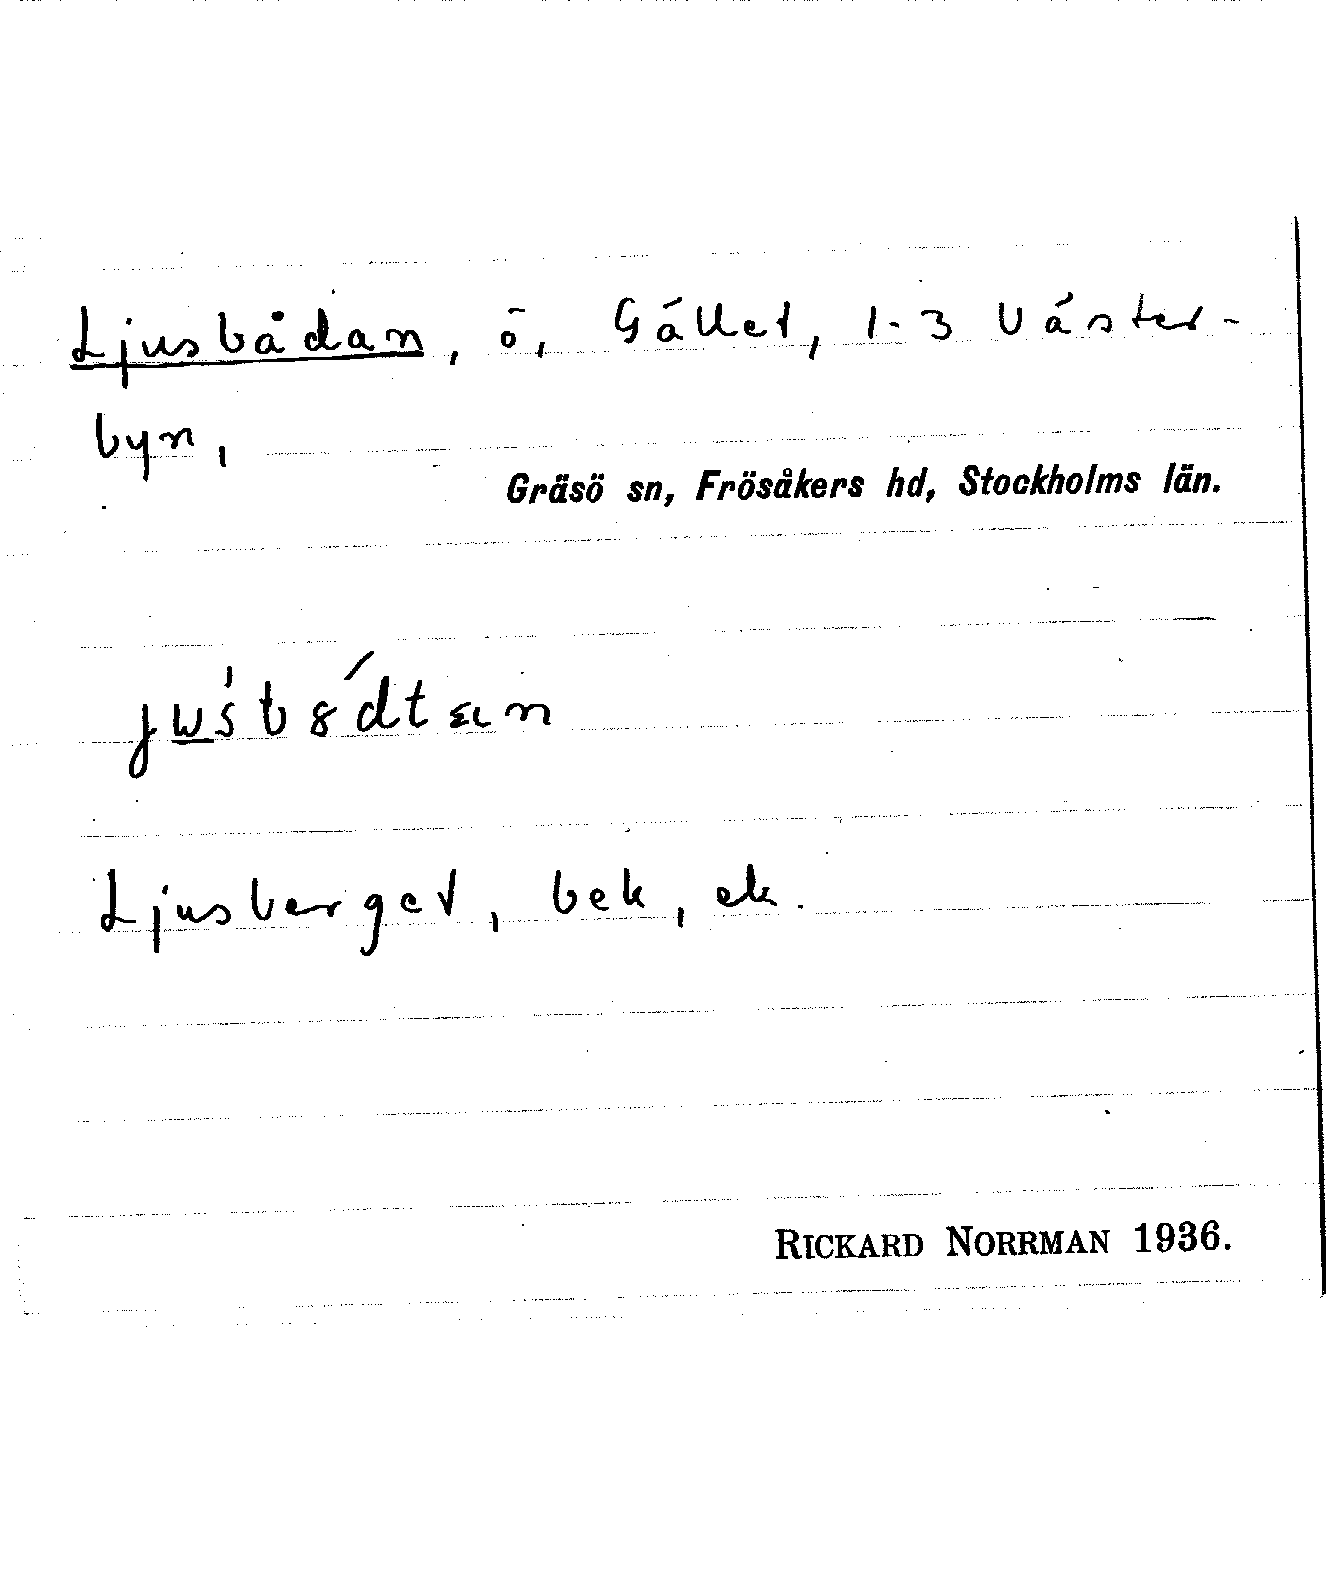 Ljusbådan, ö, Gället, 1-3 Väster-
byn,
Gräsö sn, Frösåkers hd, Stockholms län.
Ljusberget, bek, ek.
RICKARD NORRMAN 1936.